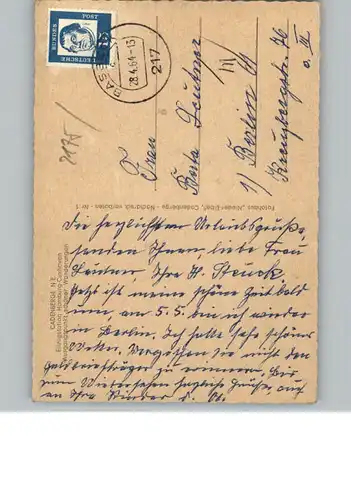 DEUTSCHE
BUNDES
POST
15
217
28.4.64-15
Frau
Berta Leutner
1) Berlin 61
Kreuzbergstr. 76
v. III
2175
CADENBERGE N E
Fotohaus "Nieder-Elbe", Cadenberge - Nachdruck verboten - Nr. 1
Die herzlichsten Urlaubsgrüße
senden Ihnen, liebe Frau
Leutner, Ihre H.
Jetzt ist meine schöne Zeit bald
um, am 5.5. bin ich wieder
in Berlin. Ich hatte sehr schönes
Wetter. Vergessen Sie nicht den
Geldbriefträger zu erinnern. Bis
zum Wiedersehen herzliche Grüße, auch
an Ihre Kinder d. Ob.